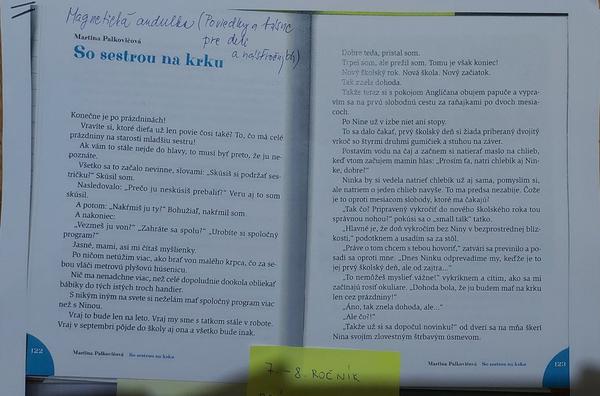 Magnetická andulka (Poviedky a básne
pre deti
a násťročných)
Martina Palkovičová
So sestrou na krku
Konečne je po prázdninách!
Vravíte si, ktoré dieťa už len povie čosi také? To, čo má celé
prázdniny na starosti mladšiu sestru!
Ak vám to stále nejde do hlavy, to musí byť preto, že ju ne-
poznáte.
Všetko sa to začalo nevinne, slovami: „Skúsiš si podržať ses-
tričku?" Skúsil som.
Nasledovalo: „Prečo ju neskúsiš prebaliť?" Veru aj to som
skúsil.
A potom: „Nakŕmiš ju ty?" Bohužiaľ, nakŕmil som.
A nakoniec:
„Vezmeš ju von?" „Zahráte sa spolu?" „Urobíte si spoločný
program?"
Jasné, mami, asi mi čítaš myšlienky.
Po ničom netúžim viac, ako brať von malého krpca, čo za se-
bou vláči metrovú plyšovú húsenicu.
Nič ma nenadchne viac, než celé dopoludnie dookola obliekať
bábiky do tých istých troch handier.
S nikým iným na svete si neželám mať spoločný program viac
než s Ninou.
Vraj to bude len na leto. Vraj my sme s tatkom stále v robote.
Vraj v septembri pôjde do školy aj ona a všetko bude inak.
122
Martina Palkovičová So sestrou na krku
Dobre teda, pristal som.
Trpel som, ale prežil som. Tomu je však koniec!
Nový školský rok. Nová škola. Nový začiatok.
Tak znela dohoda.
Takže teraz si s pokojom Angličana obujem papuče a vypra-
vím sa na prvú slobodnú cestu za raňajkami po dvoch mesia-
coch.
Po Nine už v izbe niet ani stopy.
To sa dalo čakať, prvý školský deň si žiada priberaný dvojitý
vrkoč so štyrmi druhmi gumičiek a stuhou na záver.
Postavím vodu na čaj a začnem si natierať maslo na chlieb,
keď vtom začujem mamin hlas: „Prosím ťa, natri chlebík aj Nin-
ke, dobre?"
Ninka by si vedela natrieť chlebík už aj sama, pomyslím si,
ale natriem o jeden chlieb navyše. To ma predsa nezabije. Čože
je to oproti mesiacom slobody, ktoré ma čakajú?
„Tak čo? Pripravený vykročiť do nového školského roka tou
správnou nohou?" pokúsi sa o "small talk" tatko.
„Hlavné je, že doň vykročím bez Niny v bezprostrednej blíz-
kosti," podotknem a usadím sa za stôl.
„Práve o tom chcem s tebou hovoriť," zatvári sa previnilo a po-
sadí sa oproti mne. „Dnes Ninku odprevadíme my, keďže je to
jej prvý školský deň, ale od zajtra..."
„To nemôžeš myslieť vážne!" vykríknem a cítim, ako sa mi
začínajú rosiť okuliare. „Dohoda bola, že ju budem mať na krku
len cez prázdniny!"
„Áno, tak znela dohoda, ale..."
„Ale čo?!"
„Takže už si sa dopočul novinku?" od dverí sa na mňa škerí
Nina svojím zlovestným štrbavým úsmevom.
Martina Palkovičová So sestrou na krku
123
7.-8. ROČNÍK